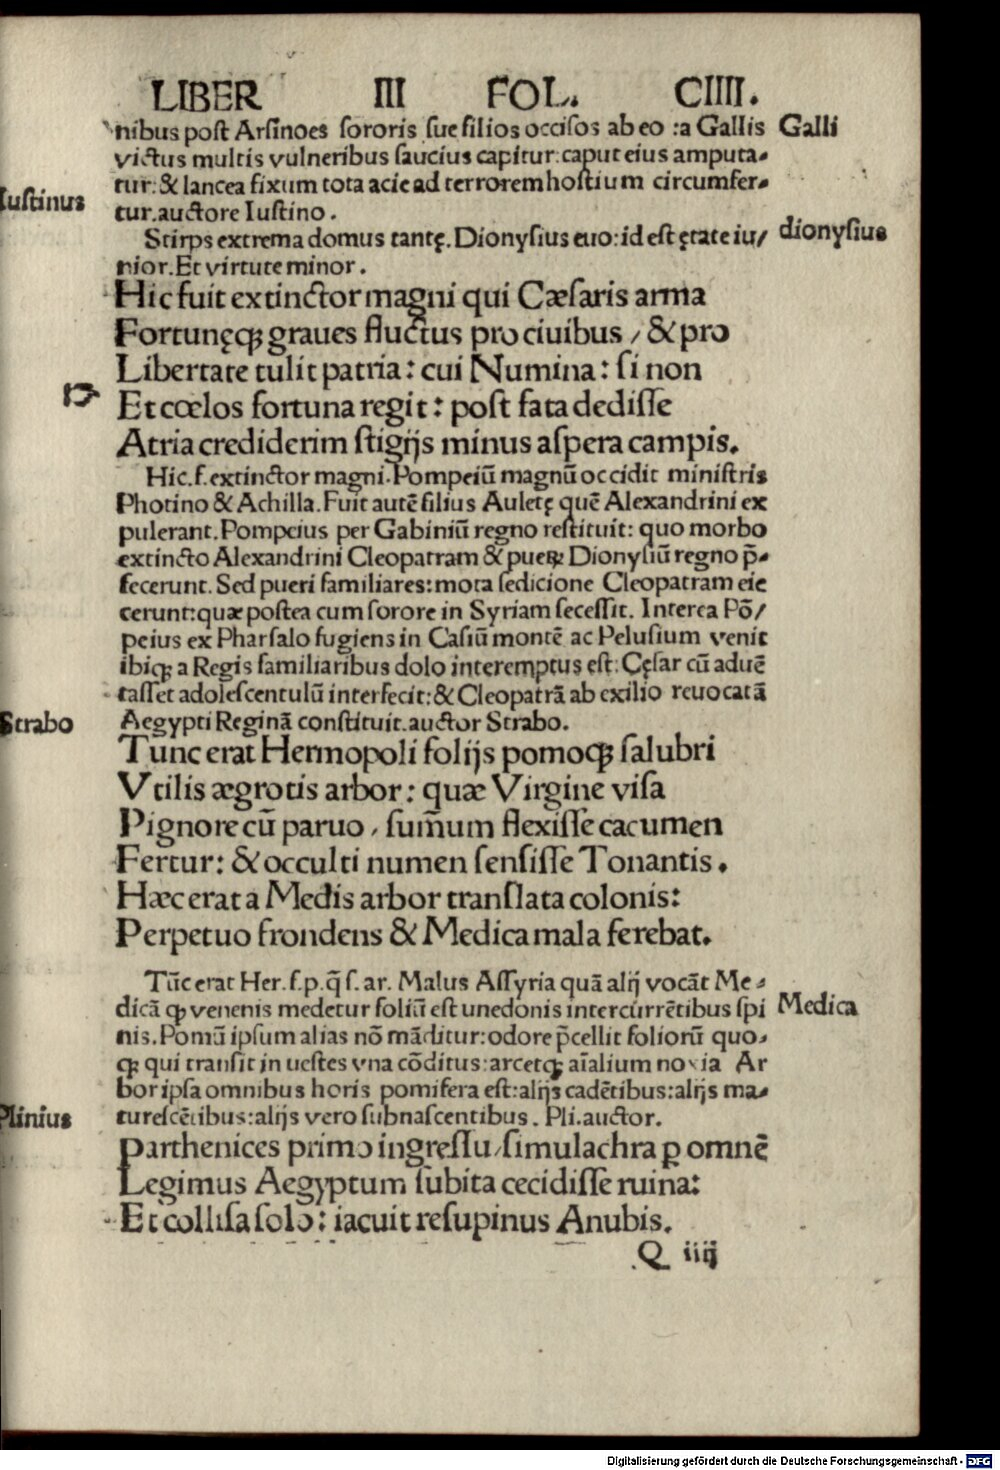 LIBER III FOL. CIIII.
nibus post Arsinoes sororis sue filios occisos ab eo :a Gallis Galli
victus multis vulneribus saucius capitur:caput eius amputa-
tur:& lancea fixum tota acie ad terrorem hostium circumfer-
Iustinus
tur.auctore Iustino.
Stirps extrema domus tantę.Dionysius euo:id est ętate iu/ dionysius
nior.Et virtute minor.
Hic fuit extinctor magni qui Cæsaris arma
Fortunęq; graues fluctus pro ciuibus / & pro
Libertate tulit patria: cui Numina: si non
☞ Et cœlos fortuna regit: post fata dedisse
Atria crediderim stigijs minus aspera campis.
Hic.f.extinctor magni.Pompeiū magnū occidit ministris
Photino & Achilla.Fuit autē filius Auletę quē Alexandrini ex
pulerant.Pompeius per Gabiniū regno restituit: quo morbo
extincto Alexandrini Cleopatram & pueꝝ Dionysiū regno p̄-
fecerunt. Sed pueri familiares:mota sedicione Cleopatram eie
cerunt:quæ postea cum sorore in Syriam secessit. Interea Pō/
peius ex Pharsalo fugiens in Casiū montē ac Pelusium venit
ibiq; a Regis familiaribus dolo interemptus est: Cęsar cū aduē
tasset adolescentulū interfecit:& Cleopatrā ab exilio reuocatā
Strabo Aegypti Reginā constituit.auctor Strabo.
Tunc erat Hermopoli folijs pomoq; salubri
Vtilis ægrotis arbor: quæ Virgine visa
Pignore cū paruo / sum̄um flexisse cacumen
Fertur: & occulti numen sensisse Tonantis.
Hæc erat a Medis arbor translata colonis:
Perpetuo frondens & Medica mala ferebat.
Tūc erat Her.f.p.q̄ s.ar. Malus Assyria quā alij vocāt Me-
dicā q; venenis medetur foliū est unedonis intercurrētibus spi Medica
nis.Pomū ipsum alias nō māditur:odore p̄cellit foliorū quo-
q; qui transit in uestes vna cōditus:arcetq; aīalium noxia Ar
bor ipsa omnibus horis pomifera est:alijs cadētibus:alijs ma-
Plinius turescētibus:alijs vero subnascentibus. Pli.auctor.
Parthenices primo ingressu/simulachra ꝑ omnē
Legimus Aegyptum subita cecidisse ruina:
Et collisa solo: iacuit resupinus Anubis.
Q iiij
Digitalisierung gefördert durch die Deutsche Forschungsgemeinschaft - DFG